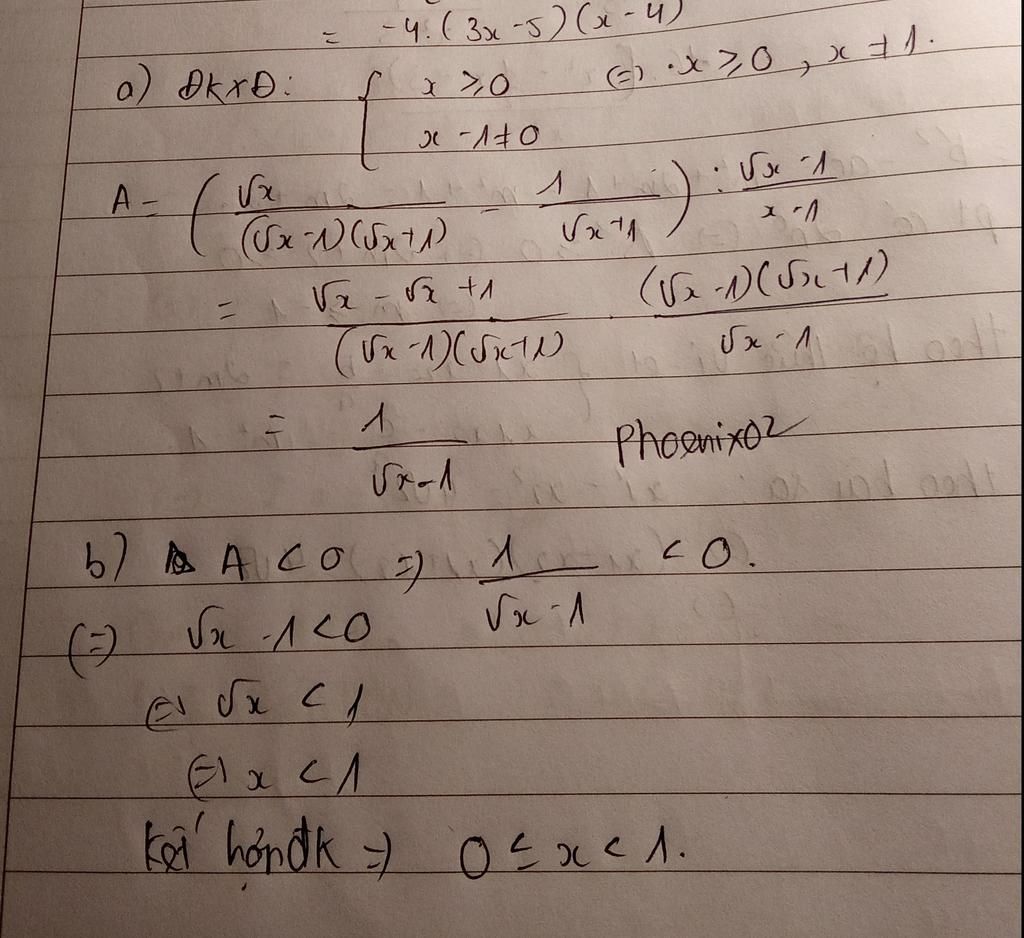 = -4.(3x-5)(x-4)
a) ĐKXĐ: { x ≥ 0 (=) x ≥ 0, x ≠ 1.
x - 1 ≠ 0
A = ( √x / (√x - 1)(√x + 1) - 1 / √x + 1 ) : √x - 1 / x - 1
= √x - √x + 1 / (√x - 1)(√x + 1) . (√x - 1)(√x + 1) / √x - 1
= 1 / √x - 1 Phoenix02
b) A < 0 =) 1 / √x - 1 < 0.
(=) √x - 1 < 0
(=) √x < 1
(=) x < 1
kết hợp đk =) 0 ≤ x < 1.